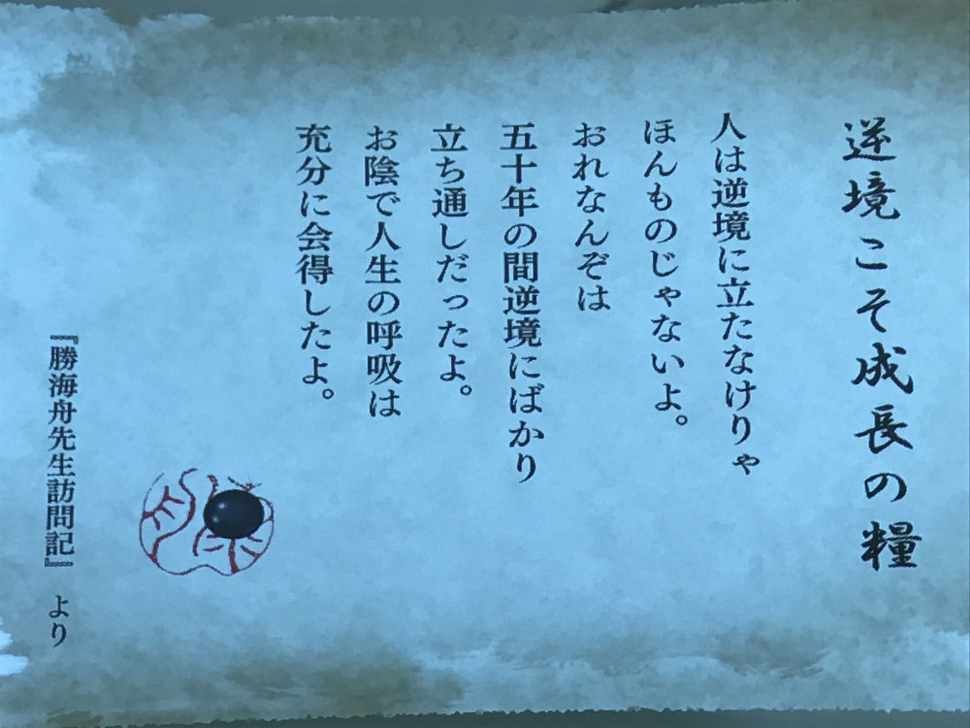 逆境こそ成長の糧
人は逆境に立たなけりゃ
ほんものじゃないよ。
おれなんぞは
五十年の間逆境にばかり
立ち通しだったよ。
お陰で人生の呼吸は
充分に会得したよ。
『勝海舟先生訪問記』より